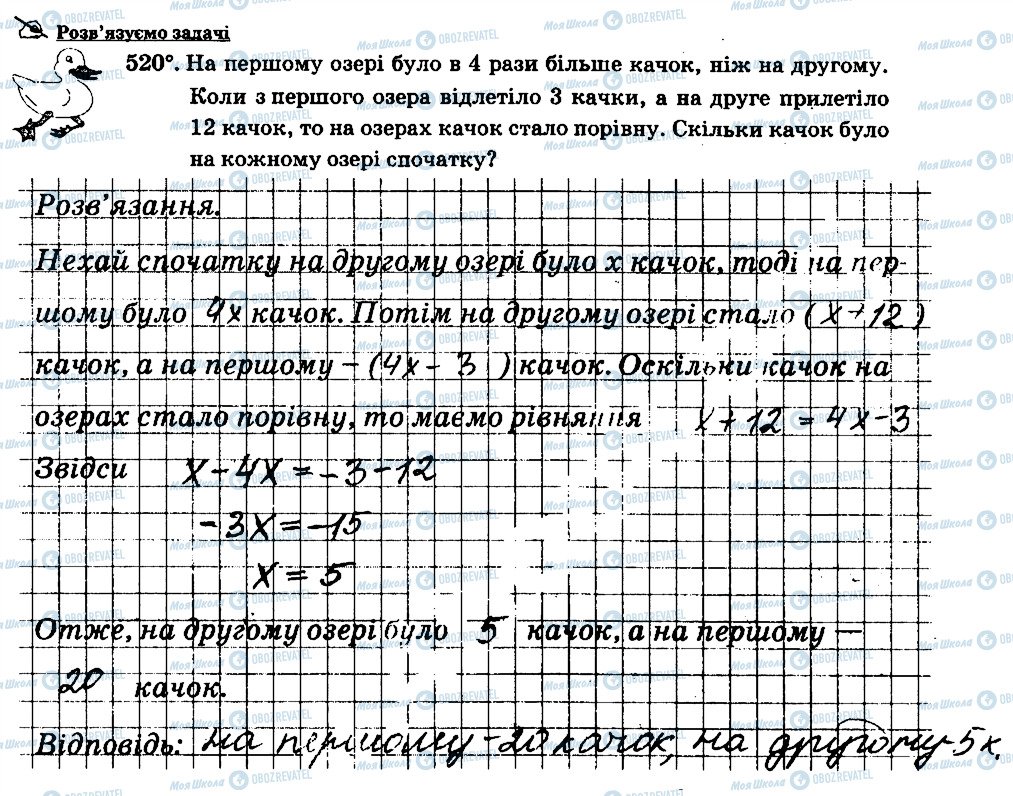 Розв'язуємо задачі
520°. На першому озері було в 4 рази більше качок, ніж на другому.
Коли з першого озера відлетіло 3 качки, а на друге прилетіло
12 качок, то на озерах качок стало порівну. Скільки качок було
на кожному озері спочатку?
Розв'язання.
Нехай спочатку на другому озері було x качок, тоді на пер-
шому було 4x качок. Потім на другому озері стало (x+12)
качок, а на першому – (4x - 3) качок. Оскільки качок на
озерах стало порівну, то маємо рівняння x+12=4x-3
Звідси x-4x=-3-12
-3x=-15
x=5
Отже, на другому озері було 5 качок, а на першому —
20 качок.
Відповідь: на першому-20 качок, на другому-5 к.